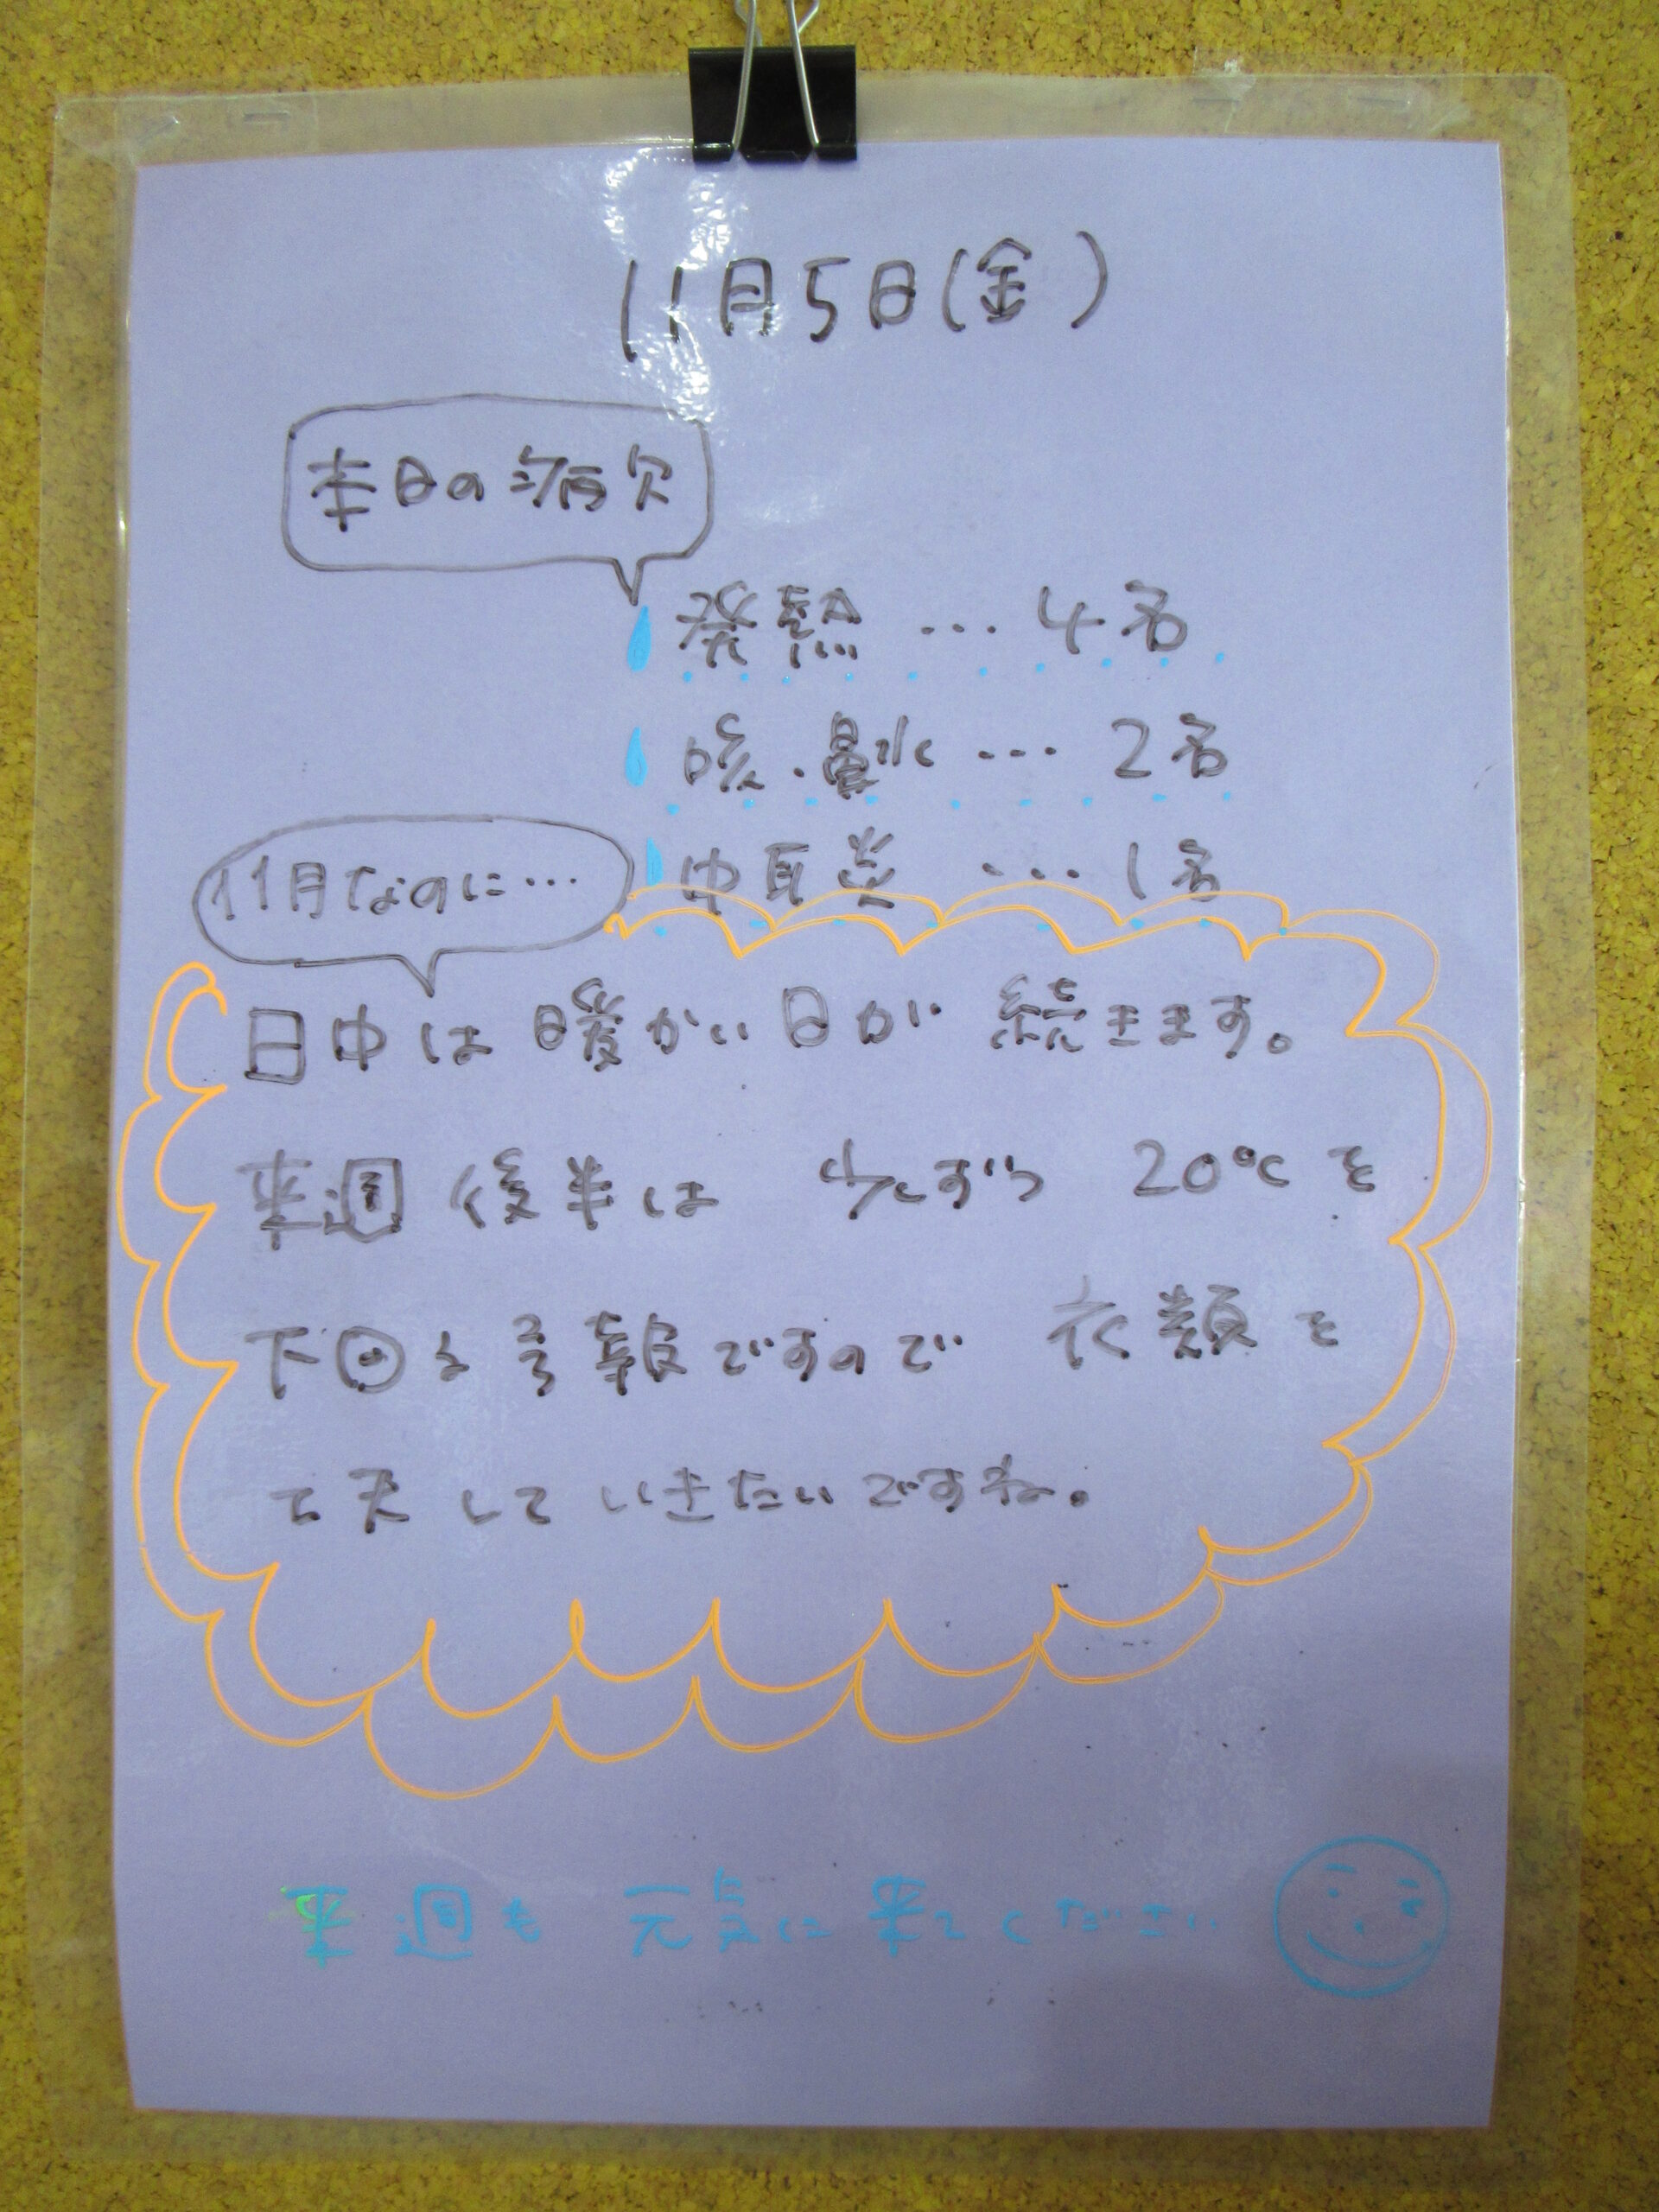 11月5日(金)
本日の病欠
発熱 … 4名
咳・鼻水 … 2名
中耳炎 … 1名
11月なのに…
日中は暖かい日が続きます。
来週後半は 少しずつ 20℃を
下回る予報ですので 衣類を
工夫していきたいですね。
来週も 元気に来てください